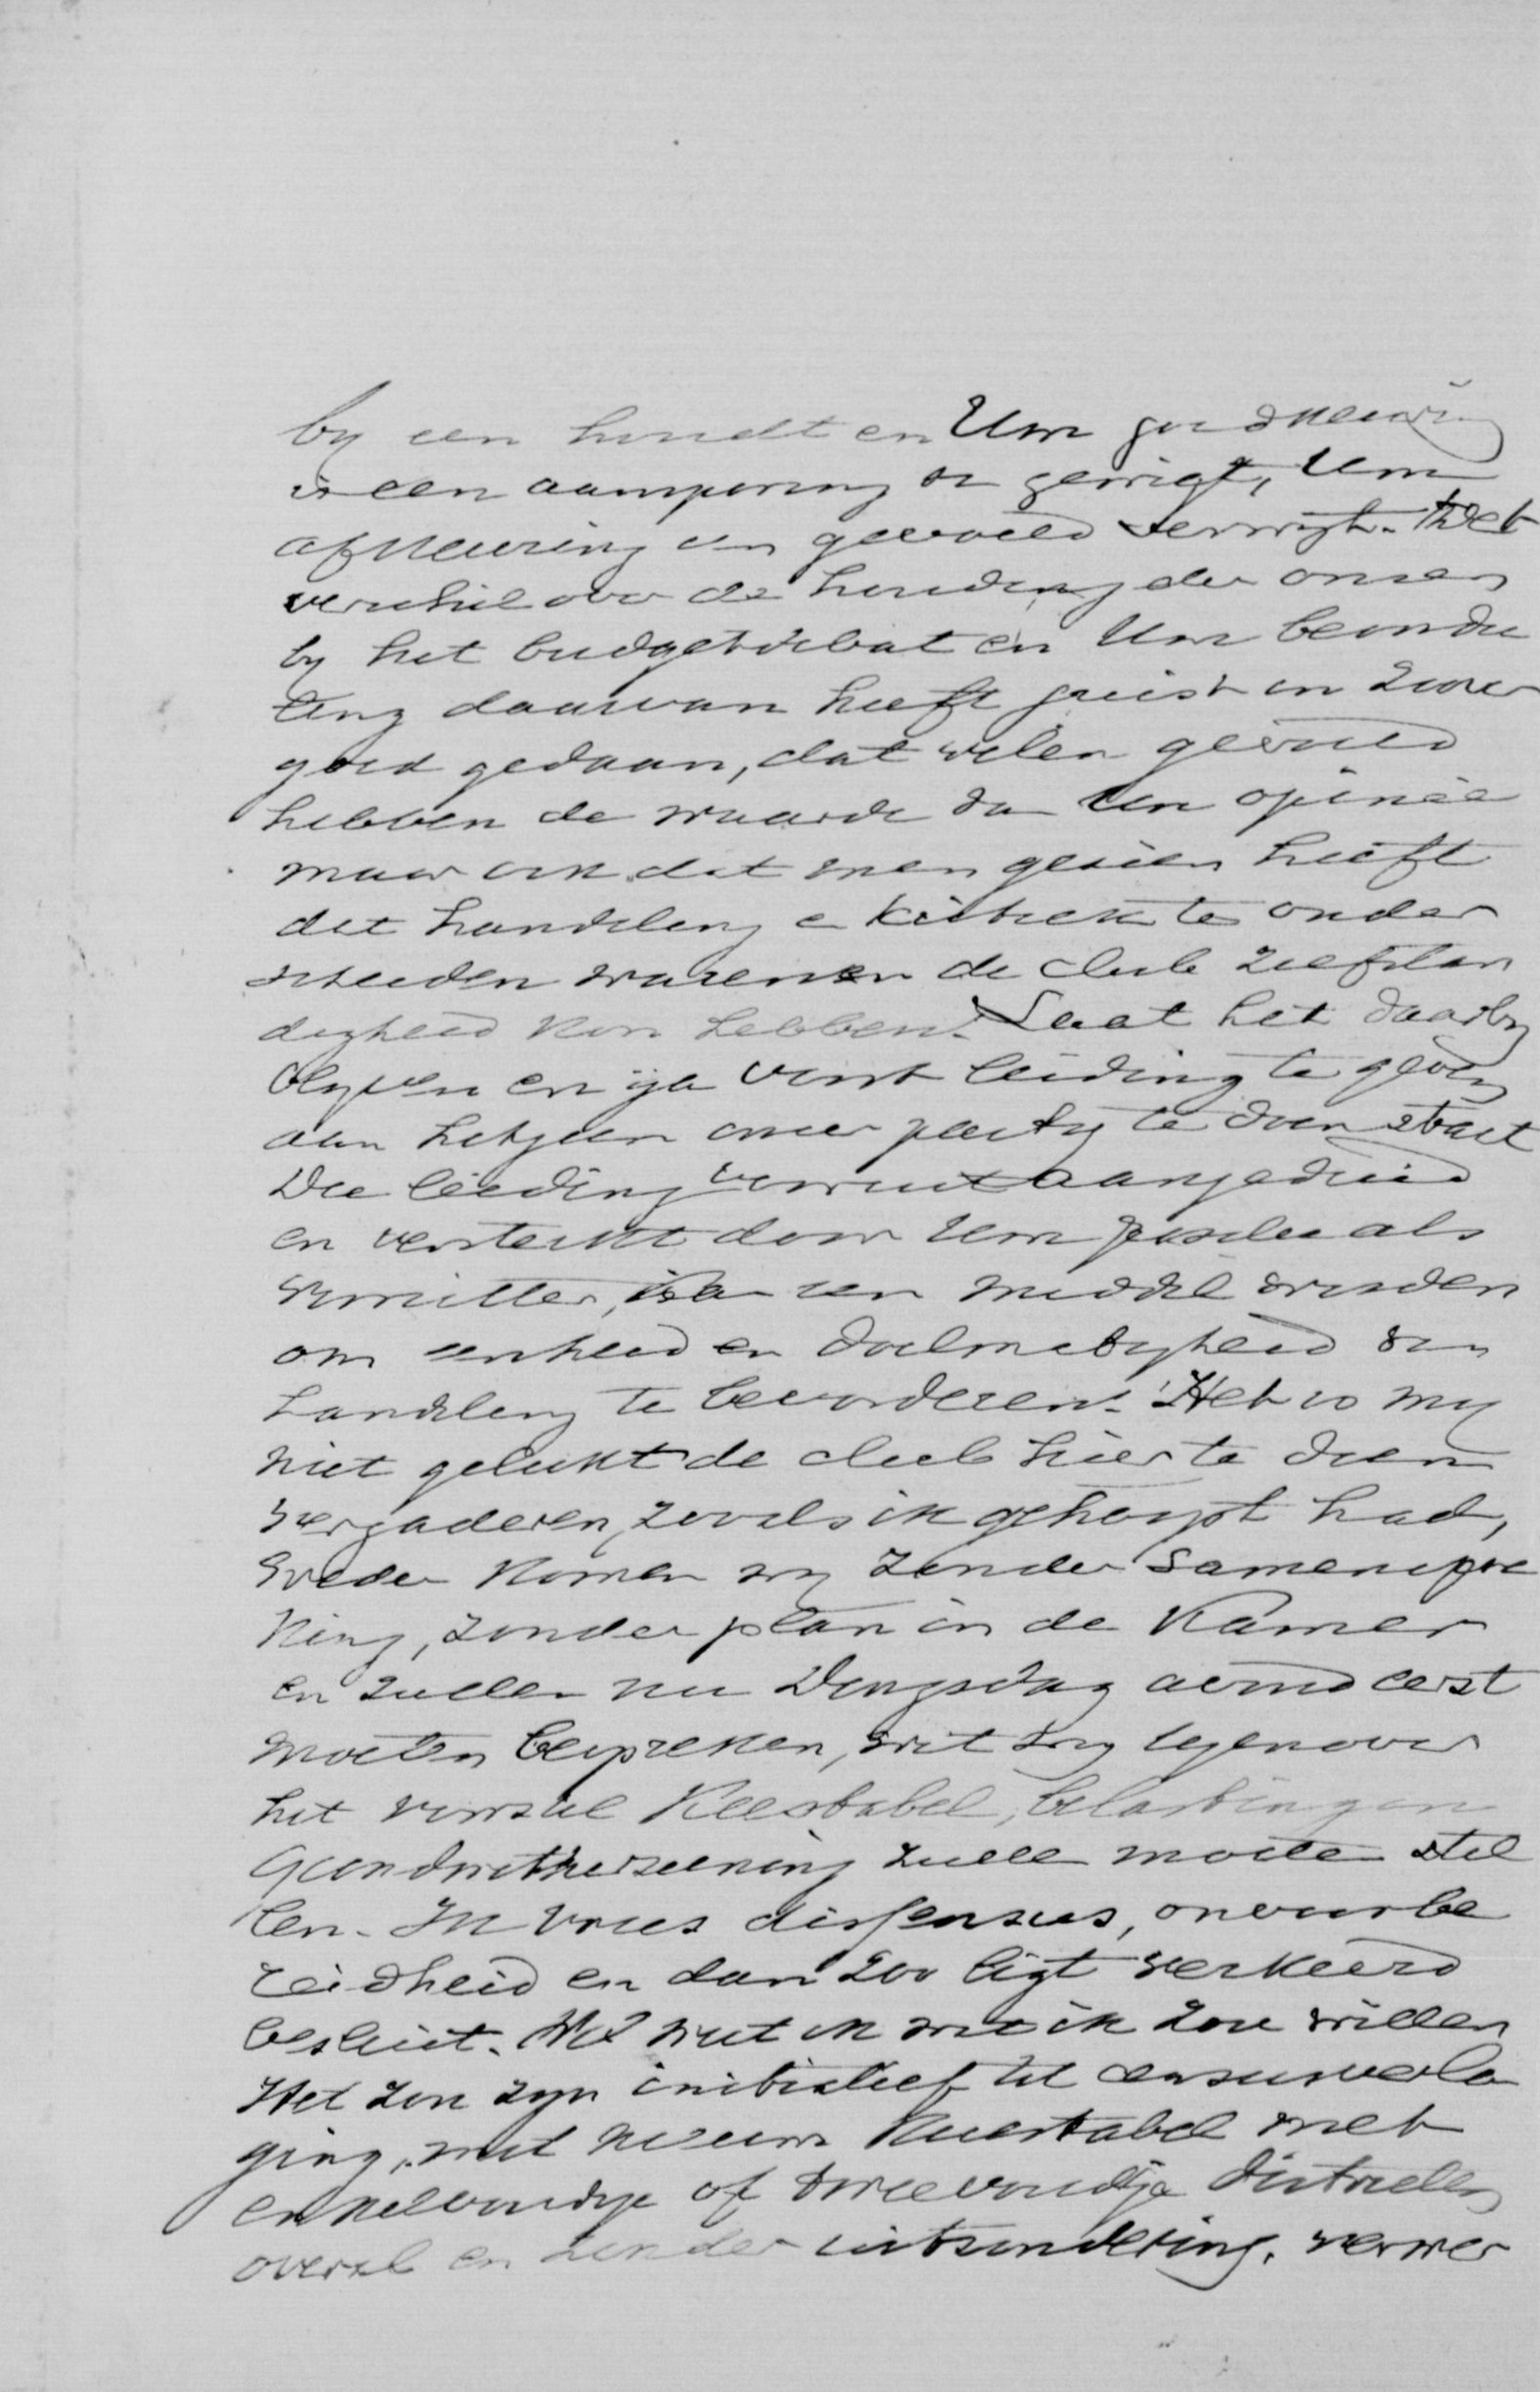 by een houdt en Uw goedkeuring
is een aansporing van gewigt, Uw
afkeuring een gevoelig verwyt. Het
verschil over de houding der onzen
by het budgetdebat en Uw beoordee
ling daarvan heeft juist in zoover
goed gedaan, dat velen gevoeld
hebben de waarde van Uw opinie
maar ook dat men gezien heeft
dat handeling en kritiek te onder
scheiden waren en de club zelfstan
digheid kon hebben. Laat het daarby
blyven en ga voort leiding te geven
aan hetgeen onze party te doen staat
Die leiding vooruit aangeduid
en versterkt door Uw positie als
 kan een middel worden
om eenheid en doelmatigheid van
handeling te bevorderen. Het is my
niet gelukt de club hier te doen
vergaderen, zooals ik gehoopt had,
Weder komen wy zonder samenspre
king, zonder plan in de Kamer
en zullen nu Dingsdag avond eerst
moeten bespreken, wat wy tegenover
het voorstel Kiestabel, belastingen
Grondwetherziening zullen moeten stel
len. Ik vrees dissensus, onvoorbe
reidheid en dan zoo ligt verkeerd
besluit. Wel weet ik wat ik zou willen
Het zou zyn initiatief tot censusverla
ging, met nieuwe Kiestabel met
enkelvoudige of tweevoudige districten
overal en zonder uitzondering. verwer